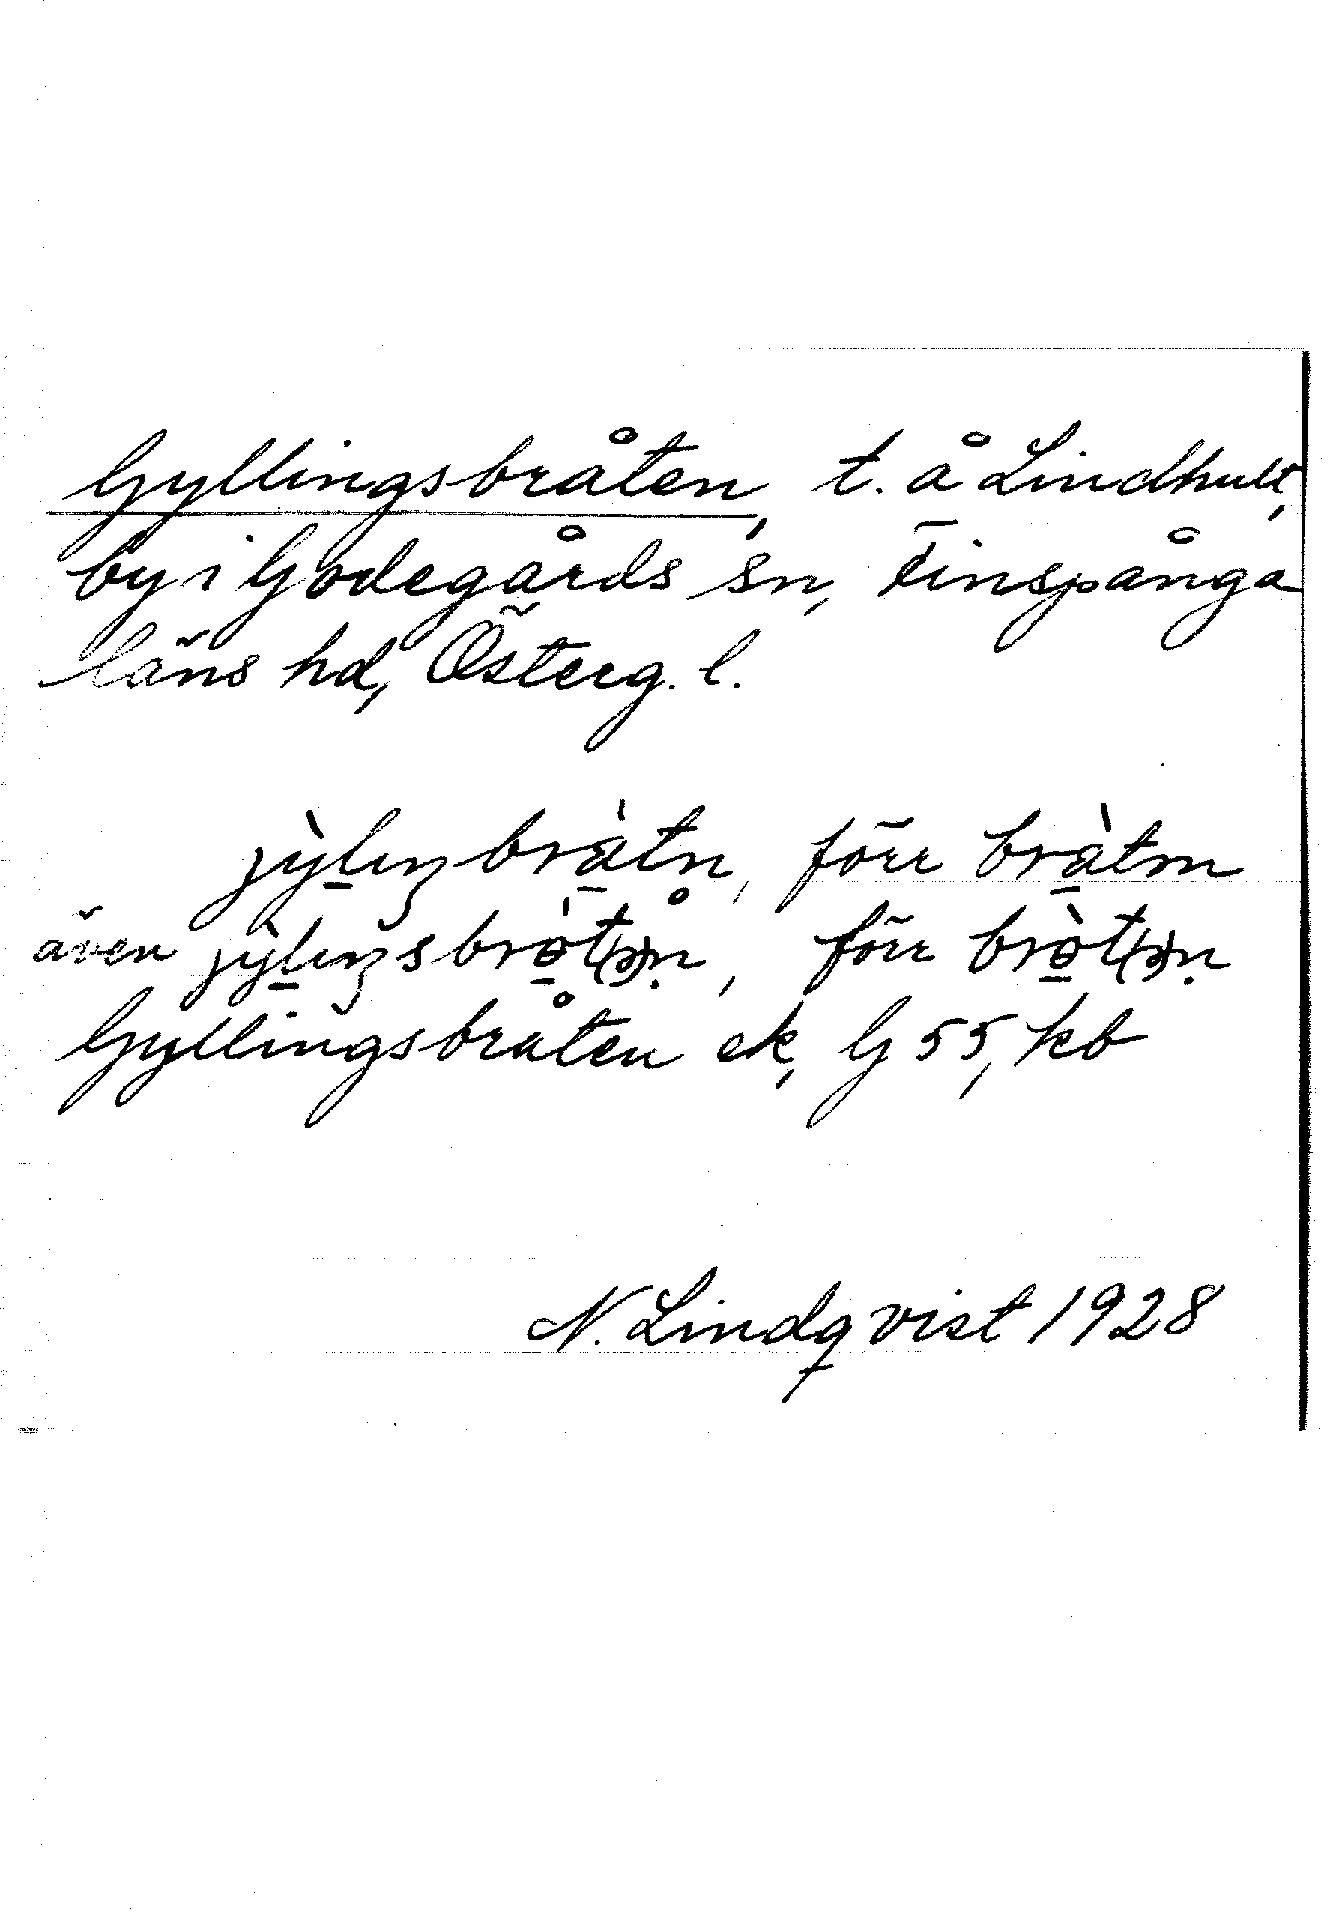 Gyllingsbråten, t. å Lindhult,
by i Godegårds sn, Finspånga
läns hd, Österg. l.
jỳlıŋbràtn̥, förr bràtm
även jỳlıŋsbròt(ə)n, förr bròt(ə)n
Gyllingsbråten ek, G 55, kb
N. Lindqvist 1928